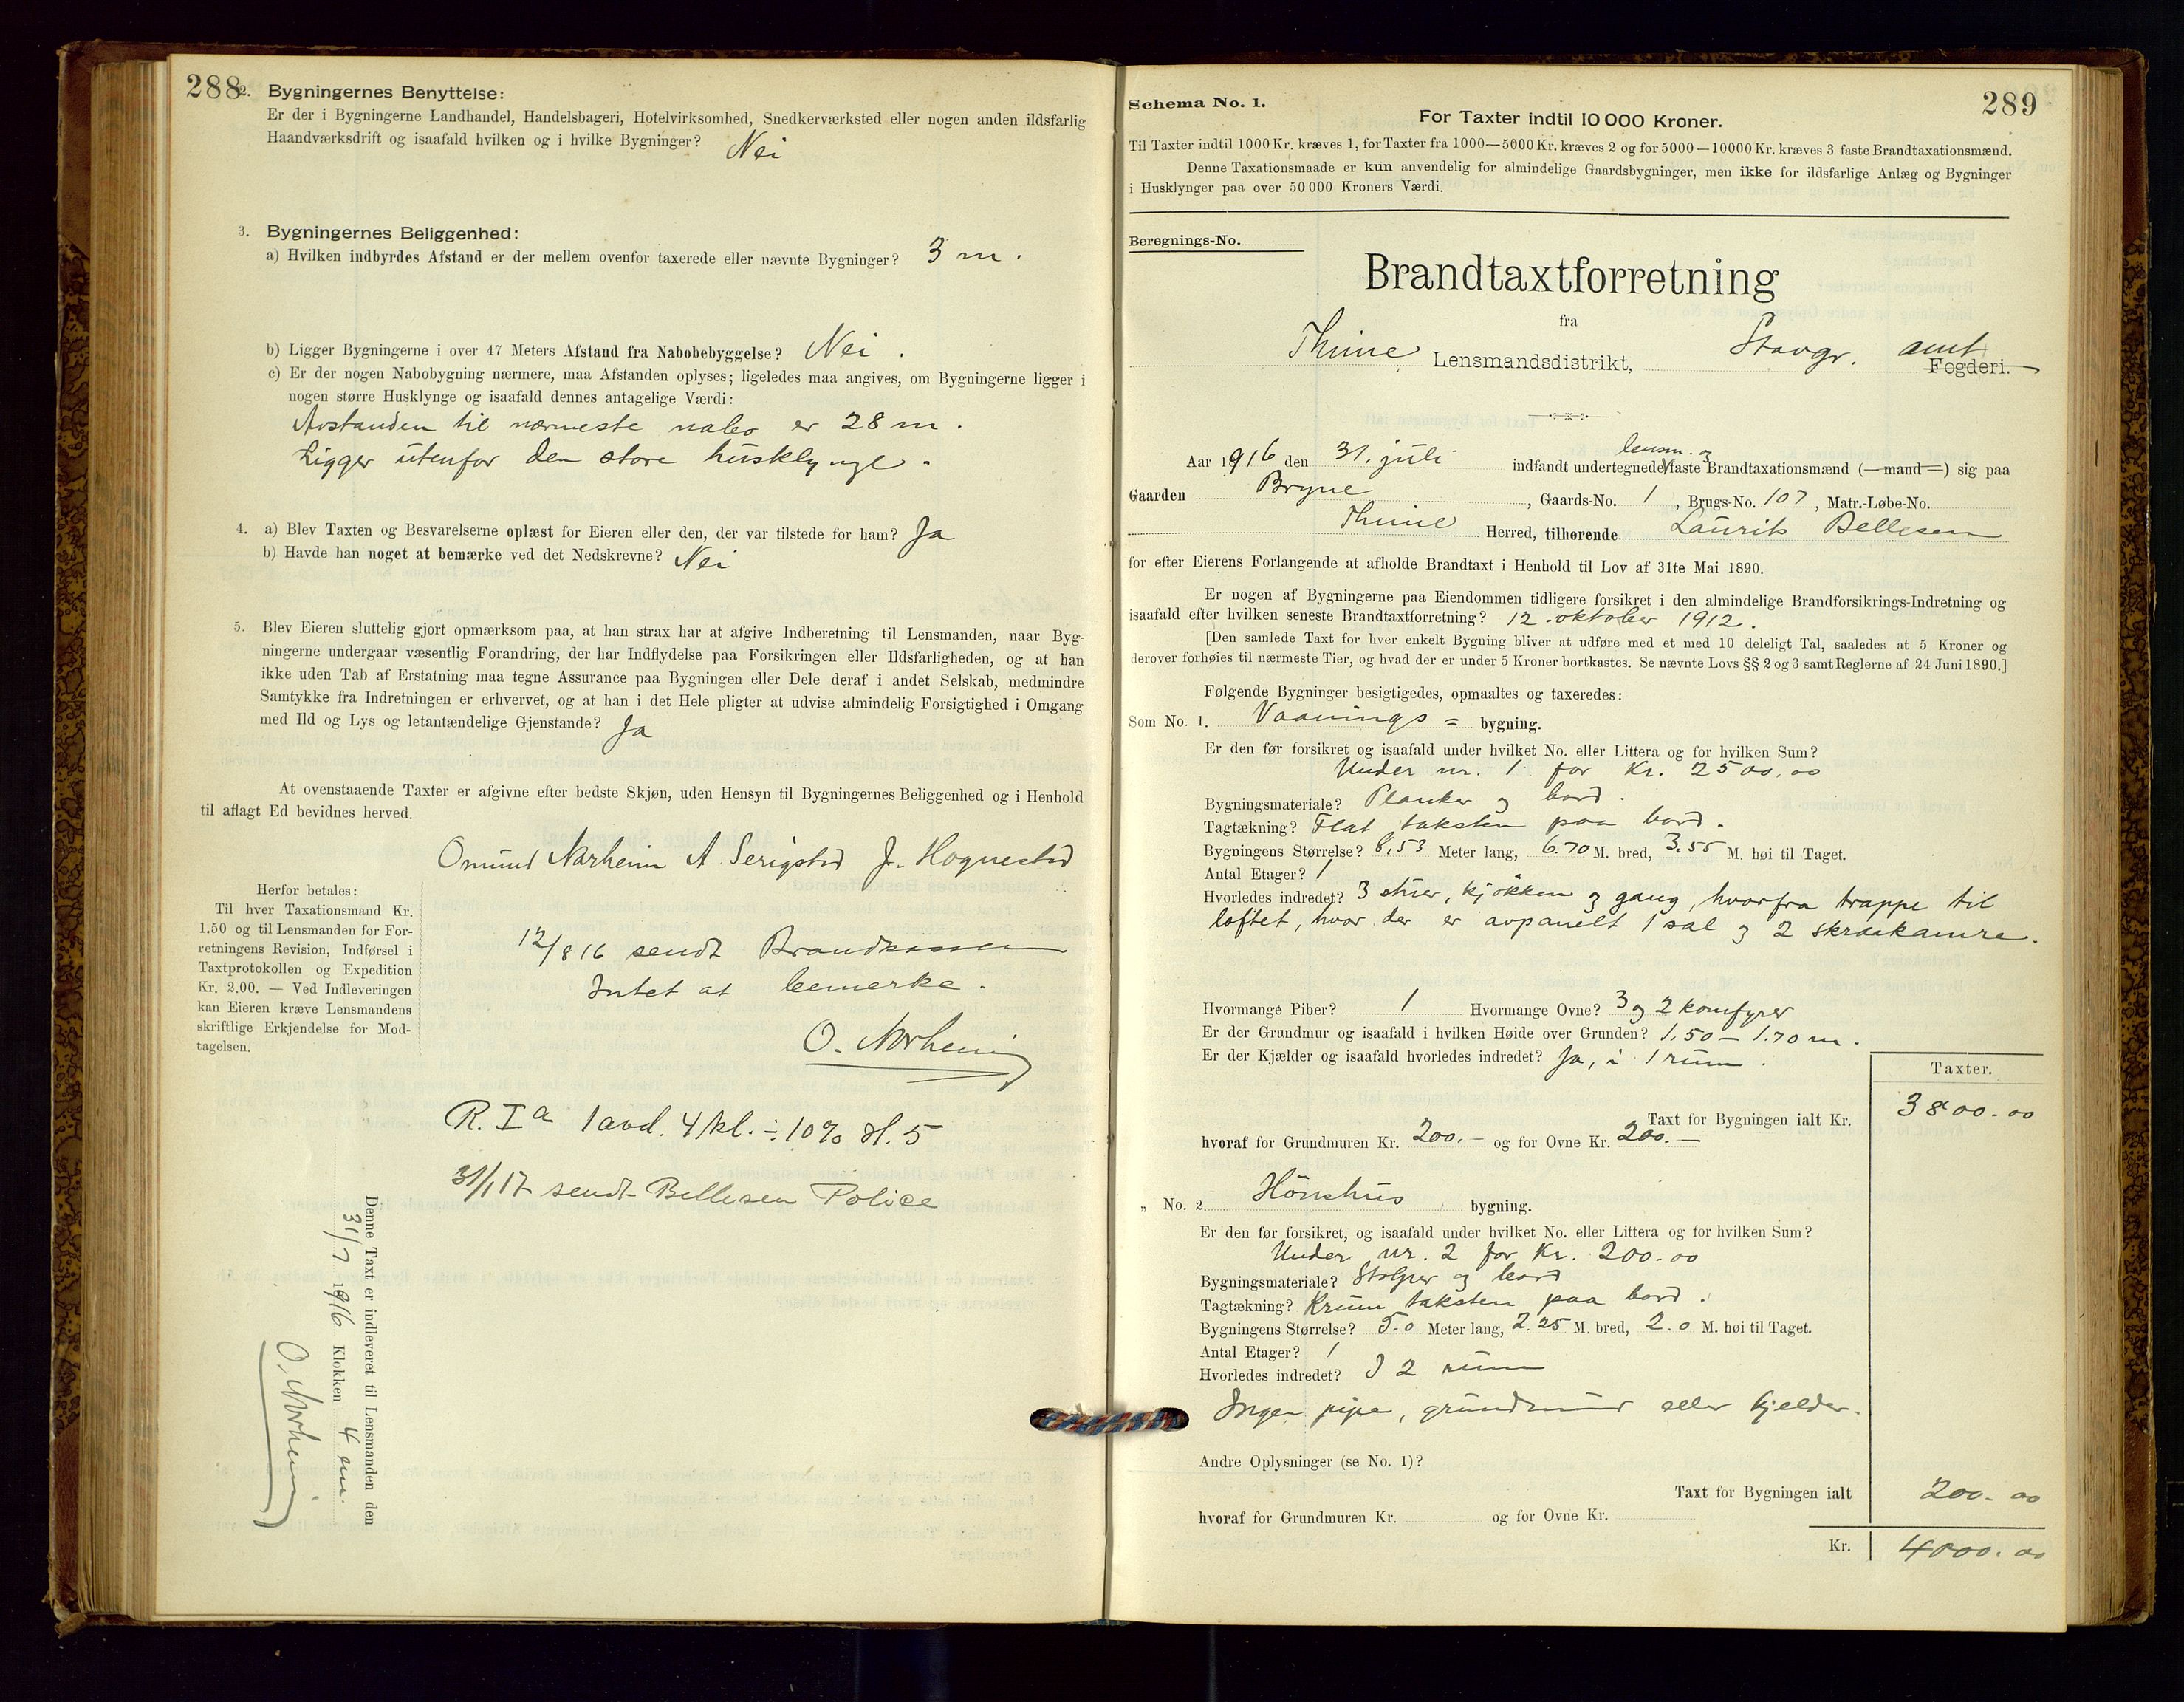 288
2. Bygningernes Benyttelse:
Er der i Bygningerne Landhandel, Handelsbageri, Hotelvirksomhed, Snedkerværksted eller nogen anden ildsfarlig
Haandværksdrift og isaafald hvilken og i hvilke Bygninger? Nei
3. Bygningernes Beliggenhed:
a) Hvilken indbyrdes Afstand er der mellem ovenfor taxerede eller nævnte Bygninger? 3 m.
b) Ligger Bygningerne i over 47 Meters Afstand fra Nabobebyggelse? Nei.
c) Er der nogen Nabobygning nærmere, maa Afstanden oplyses; ligeledes maa angives, om Bygningerne ligger i
nogen større Husklynge og isaafald dennes antagelige Værdi:
Avstanden til nærmeste nabo er 28 m.
Ligger utenfor den store husklynge.
4. a) Blev Taxten og Besvarelserne oplæst for Eieren eller den, der var tilstede for ham? Ja
b) Havde han noget at bemærke ved det Nedskrevne? Nei
5. Blev Eieren sluttelig gjort opmærksom paa, at han strax har at afgive Indberetning til Lensmanden, naar Byg-
ningerne undergaar væsentlig Forandring, der har Indflydelse paa Forsikringen eller Ildsfarligheden, og at han
ikke uden Tab af Erstatning maa tegne Assurance paa Bygningen eller Dele deraf i andet Selskab, medmindre
Samtykke fra Indretningen er erhvervet, og at han i det Hele pligter at udvise almindelig Forsigtighed i Omgang
med Ild og Lys og letantændelige Gjenstande? Ja
At ovenstaaende Taxter er afgivne efter bedste Skjøn, uden Hensyn til Bygningernes Beliggenhed og i Henhold
til aflagt Ed bevidnes herved.
Omund Norheim A. Serigstad J. Hognestad
Herfor betales:
Til hver Taxationsmand Kr.
1.50 og til Lensmanden for For-
retningens Revision, Indførsel i
Taxtprotokollen og Expedition
Kr. 2.00. — Ved Indleveringen
kan Eieren kræve Lensmandens
skriftlige Erkjendelse for Mod-
tagelsen.
12/8 16 sendt Brandkassen
Intet at bemerke.
O. Norheim
R. I a 1 avd. 4 kl. ÷ 10% H. 5
31/1 17 sendt Bellesen Police
Denne Taxt er indleveret til Lensmanden den
31/7 1916 Klokken 4 em.
O. Norheim
289
Schema No. 1.
For Taxter indtil 10 000 Kroner.
Til Taxter indtil 1000 Kr. kræves 1, for Taxter fra 1000—5000 Kr. kræves 2 og for 5000—10000 Kr. kræves 3 faste Brandtaxationsmænd.
Denne Taxationsmaade er kun anvendelig for almindelige Gaardsbygninger, men ikke for ildsfarlige Anlæg og Bygninger
i Husklynger paa over 50 000 Kroners Værdi.
Beregnings-No.
Brandtaxtforretning
fra
Thime Lensmandsdistrikt, Stavgr. amt Fogderi.
lensm. og
Aar 1916 den 31. juli indfandt undertegnede faste Brandtaxationsmænd (—mand—) sig paa
Gaarden Bryne, Gaards-No. 1, Brugs-No. 107, Matr.-Løbe-No.
Thime Herred, tilhørende Laurits Bellesen
for efter Eierens Forlangende at afholde Brandtaxt i Henhold til Lov af 31te Mai 1890.
Er nogen af Bygningerne paa Eiendommen tidligere forsikret i den almindelige Brandforsikrings-Indretning og
isaafald efter hvilken seneste Brandtaxtforretning? 12. oktober 1912.
[Den samlede Taxt for hver enkelt Bygning bliver at udføre med et med 10 deleligt Tal, saaledes at 5 Kroner og
derover forhøies til nærmeste Tier, og hvad der er under 5 Kroner bortkastes. Se nævnte Lovs §§ 2 og 3 samt Reglerne af 24 Juni 1890.]
Følgende Bygninger besigtigedes, opmaaltes og taxeredes:
Som No. 1. Vaanings = bygning.
Er den før forsikret og isaafald under hvilket No. eller Littera og for hvilken Sum?
Under nr. 1 for Kr. 2500.00
Bygningsmateriale? Planker og bord.
Tagtækning? Flat taksten paa bord.
Bygningens Størrelse? 8,53 Meter lang, 6.70 M. bred, 3.55 M. høi til Taget.
Antal Etager? 1
Hvorledes indredet? 3 stuer, kjøkken og gang, hvorfra trappe til
loftet, hvor der er avpanelt 1 sal og 2 skraakamre.
Hvormange Piber? 1 Hvormange Ovne? 3 og 2 komfyrer
Er der Grundmur og isaafald i hvilken Høide over Grunden? 1.50 – 1.70 m.
Er der Kjælder og isaafald hvorledes indredet? Ja, i 1 rum.
Taxter.
Taxt for Bygningen ialt Kr. 3800.00
hvoraf for Grundmuren Kr. 200.– og for Ovne Kr. 200.–
„ No. 2. Hönshus bygning.
Er den før forsikret, og isaafald under hvilket No. eller Littera og for hvilken Sum?
Under nr. 2 for Kr. 200.00
Bygningsmateriale? Stolper og bord
Tagtækning? Krum taksten paa bord.
Bygningens Størrelse? 5.0 Meter lang, 2.25 M. bred, 2.0 M. høi til Taget.
Antal Etager? 1
Hvorledes indredet? I 2 rum
Ingen pipe, grundmur eller kjelder.
Andre Oplysninger (se No. 1)?
Taxt for Bygningen ialt 200.00
hvoraf for Grundmuren Kr. og for Ovne Kr.
Kr. 4000.00